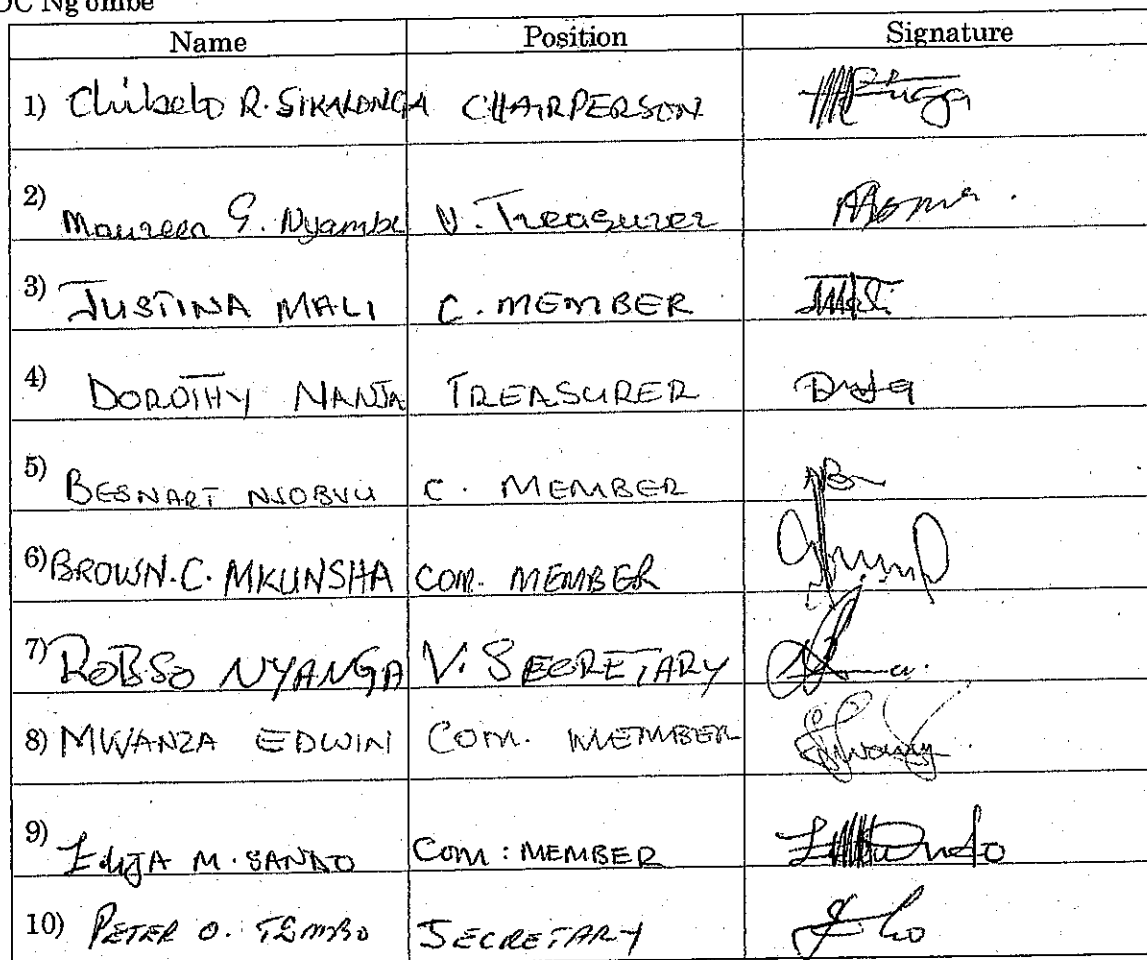 DC Ng'ombe
Name Position Signature
1) Chibelo R. SIKALONGA CHAIRPERSON
2) Maureen G. Nyambe V. Treasurer
3) JUSTINA MALI C. MEMBER
4) DOROTHY NANJA TREASURER
5) BESNART NJOBVU C. MEMBER
6) BROWN.C. MKUNSHA COM. MEMBER
7) ROBSO NYANGA V. SECRETARY
8) MWANZA EDWIN COM. MEMBER
9) M. COM: MEMBER
10) PETER O. TEMBO SECRETARY